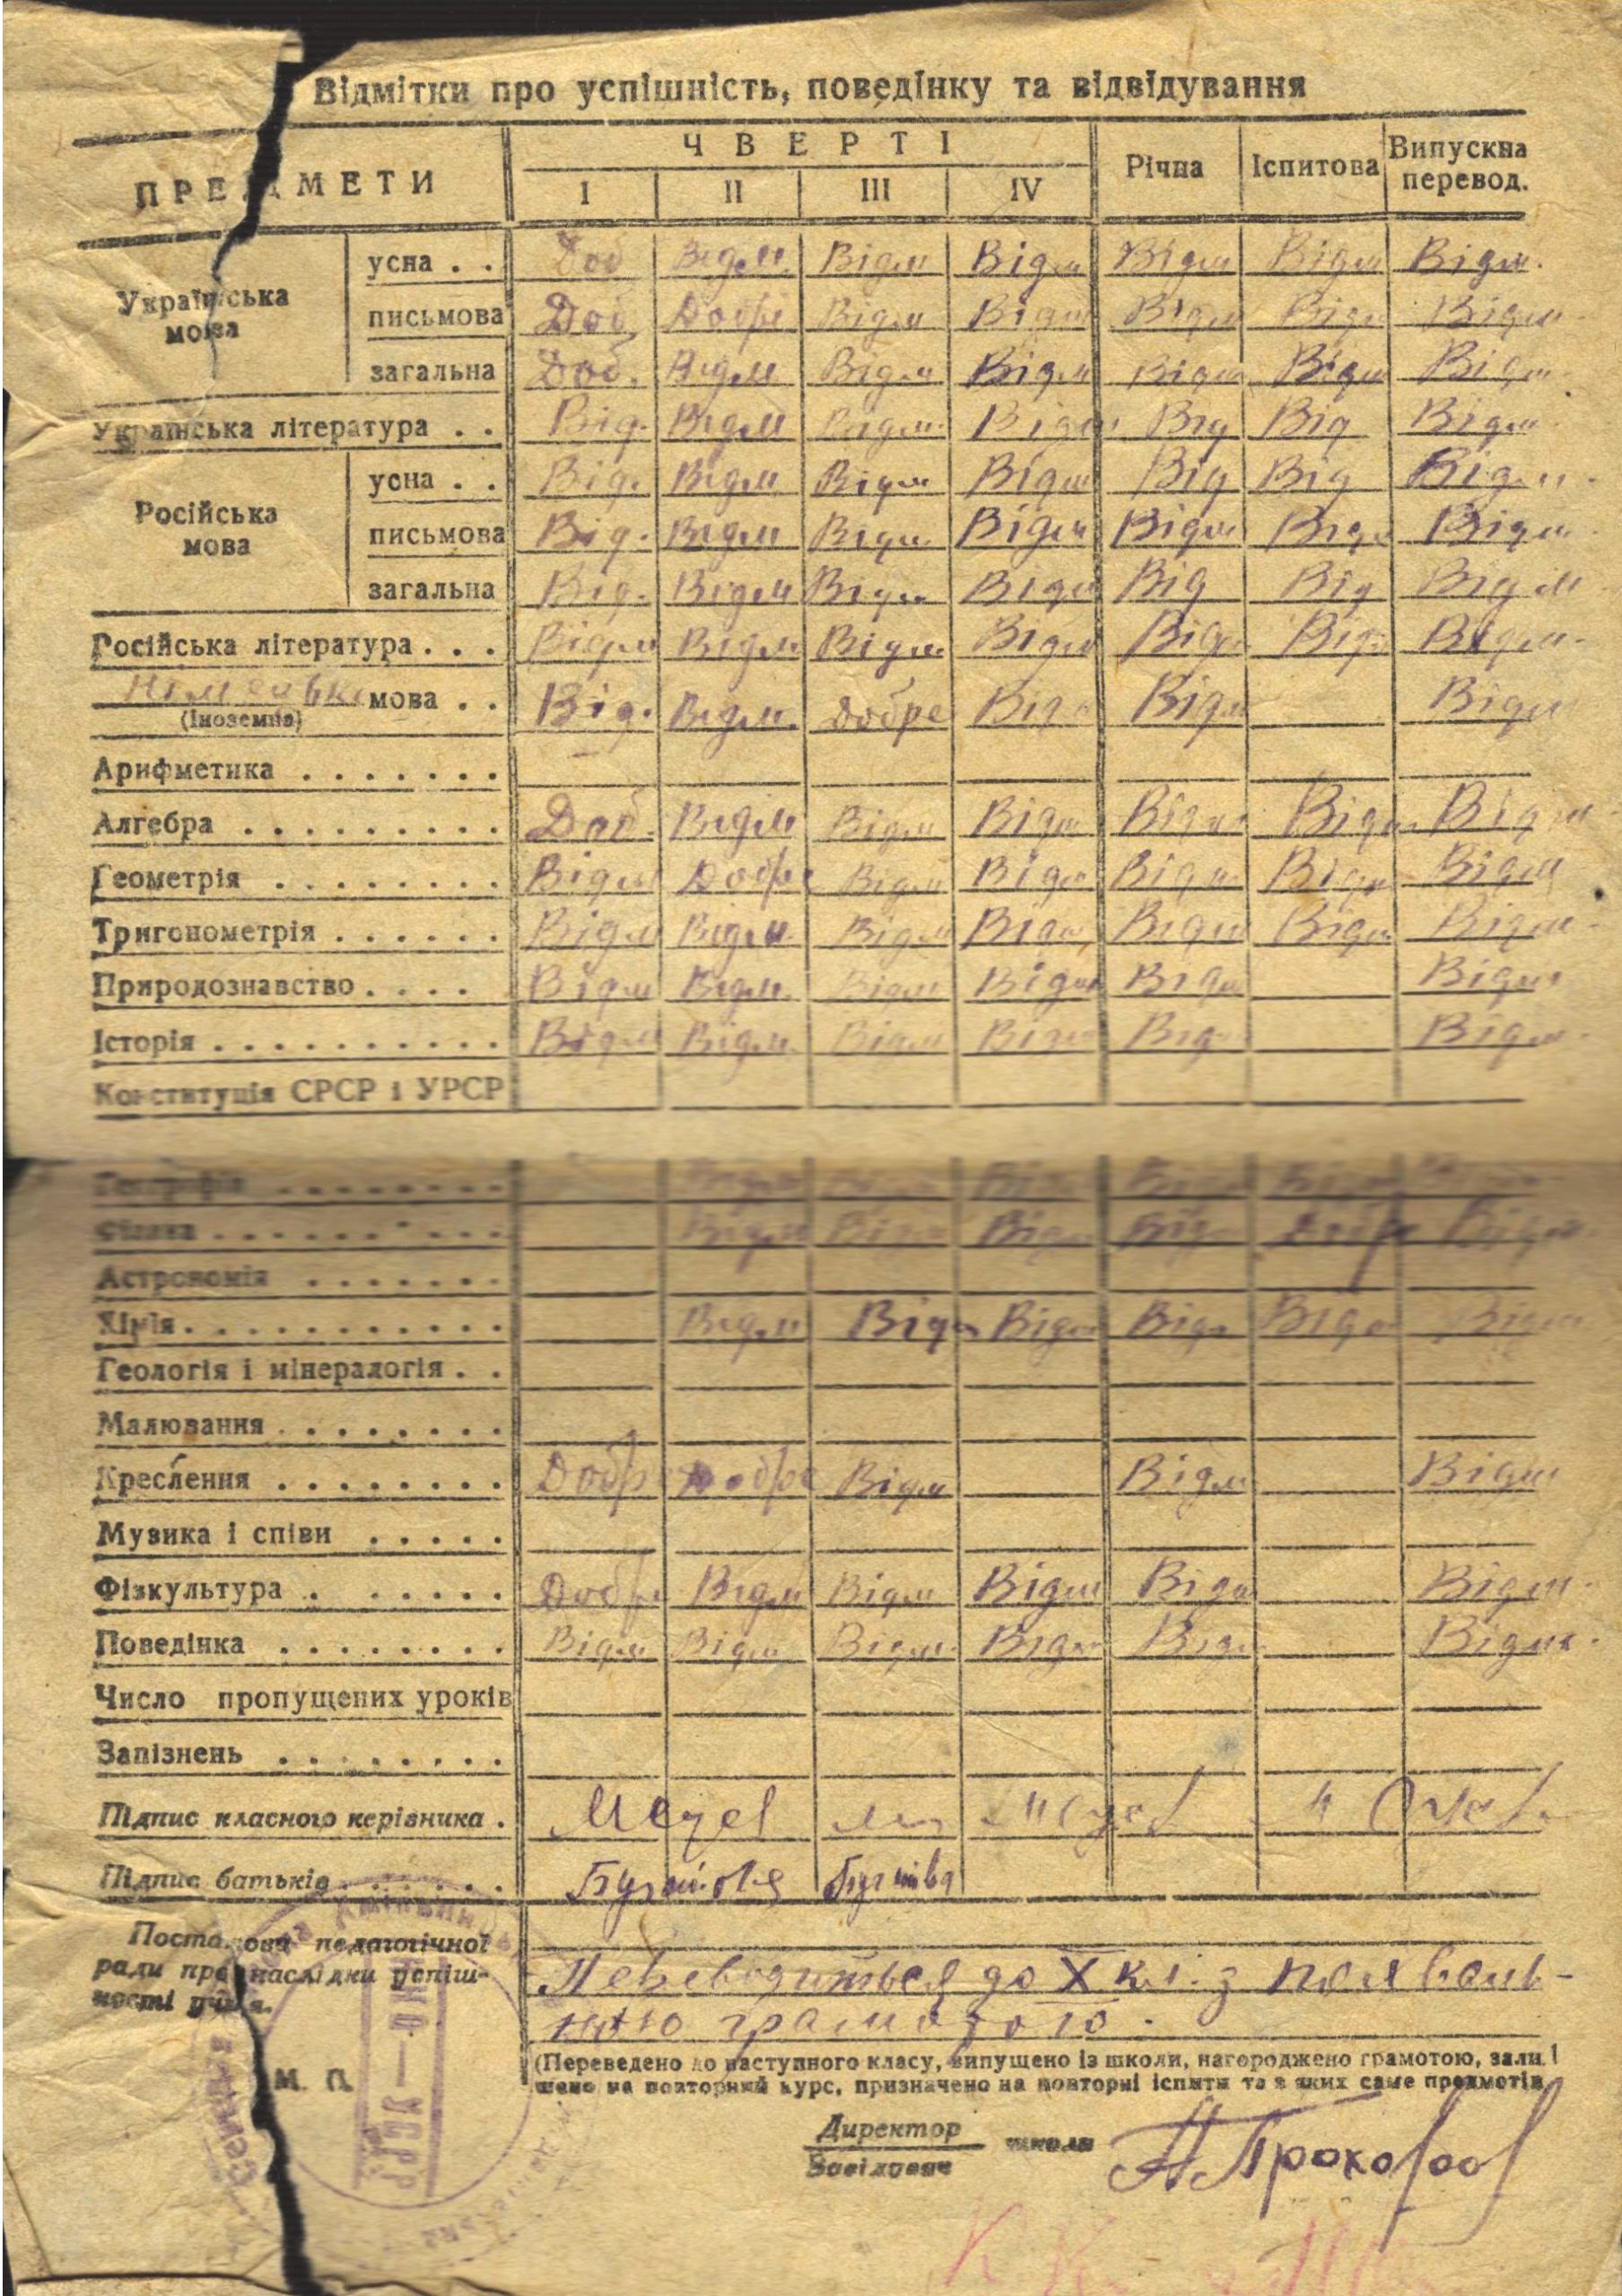 Відмітки про успішність, поведінку та відвідування
ПРЕДМЕТИ ЧВЕРТІ Річна Іспитова Випускна перевод.
I II III IV
Українська мова
усна . . Доб Відм Відм Відм Відм Відм Відм.
письмова Доб. Добре Відм Відм Відм Відм Відм.
загальна Доб. Відм Відм Відм Відм Відм Відм.
Українська література . . Від. Відм Відм. Відм Від Від Відм.
Російська мова
усна . . Від. Відм Відм Відм Від Від Відм.
письмова Від. Відм Відм Відм Відм Відм Відм.
загальна Від. Відм Відм Відм Від Від Відм
Російська література . . . Відм Відм Відм Відм Відм Відм Відм.
мова . . Від. Відм. добре Відм Відм Відм
(іноземна)
Арифметика . . . . . . .
Алгебра . . . . . . . . . Доб. Відм Відм Відм Відм Відм Відм
Геометрія . . . . . . . . Відм Добре Відм Відм Відм Відм Відм
Тригонометрія . . . . . . Відм Відм. Відм Відм Відм Відм Відм.
Природознавство . . . . Відм Відм. Відм Відм Відм Відм
Історія . . . . . . . . . . Відм Відм. Відм Відм Від Відм.
Конституція СРСР і УРСР
Географія . . . . . . . . Відм
Фізика . . . . . . . . . Відм Відм Відм Від Добре Відм
Астрономія . . . . . . .
Хімія . . . . . . . . . . . Відм Відм Відм Відм Відм Відм
Геологія і мінералогія . .
Малювання . . . . . . . .
Креслення . . . . . . . . Добр Добре Відм Відм Відм
Музика і співи . . . . .
Фізкультура . . . . . . Добре Відм Відм Відм Відм Відм.
Поведінка . . . . . . . . Відм Відм Відм. Відм Відм Відм.
Число пропущених уроків
Запізнень . . . . . . . .
Підпис класного керівника .
Підпис батьків . . . . . .
Постанова педагогічної
ради про наслідки успіш-
ності учня.
Переводиться до X кл. з похваль-
ною грамотою.
(Переведено до наступного класу, випущено із школи, нагороджено грамотою, зали-
шено на повторний курс, призначено на повторні іспити та з яких саме предметів)
М. П.
НКО — УСРР
Директор школи
Завідувач
А Прохоров